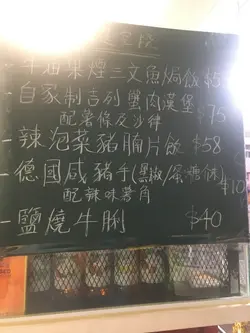 - 牛油果煙三文魚焗飯 $5
- 自家制吉列蟹肉漢堡
配薯條及沙律 $75
- 辣泡菜豬腩片飯 $58
- 德國咸豬手(黑椒/蛋 $10
配辣味薯角
- 鹽燒牛脷 $40